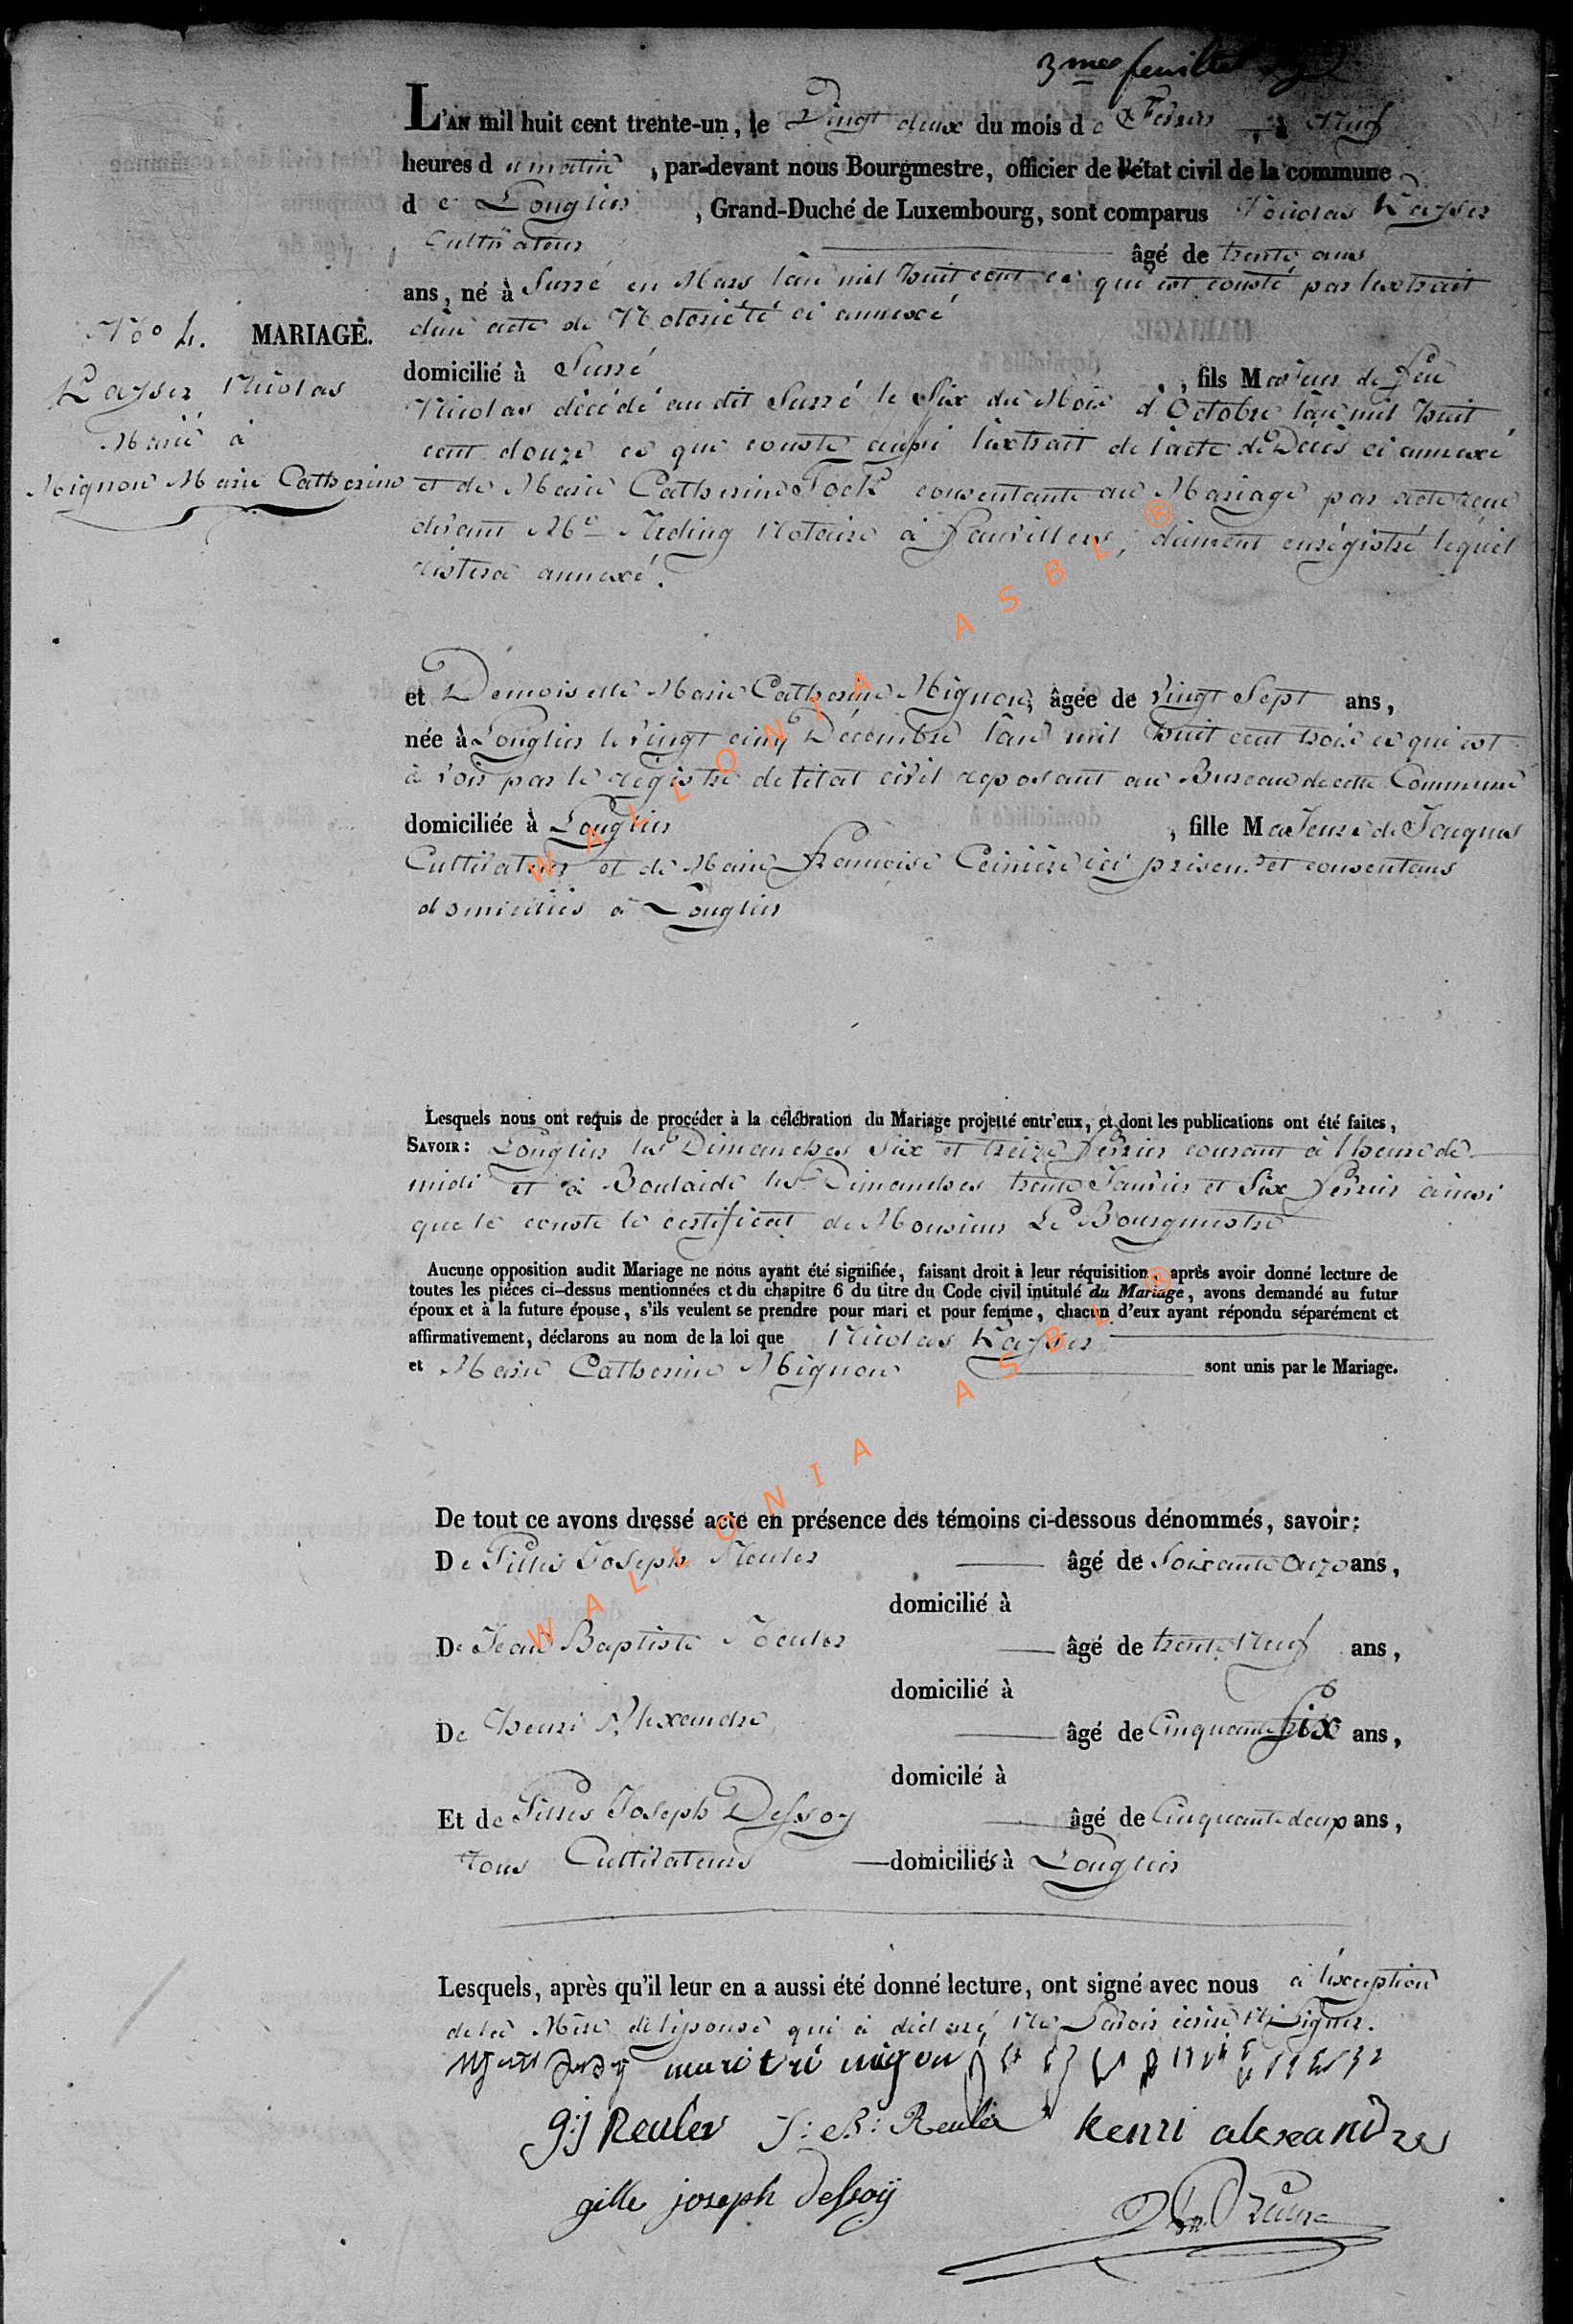 3mes feuillet
L'AN mil huit cent trente-un, le Vingt deux du mois de Février à Neuf
heures du matin, par-devant nous Bourgmestre, officier de l'état civil de la commune
de Longlier, Grand-Duché de Luxembourg, sont comparus Nicolas Kayser
Cultivateur âgé de trente ans
ans, né à Surré en Mars l'an mil huit cent ce qui est consté par l'extrait
d'un acte de Notoriété ci annexé
No 4. MARIAGE.
Kayser Nicolas
Marié à
Mignon Marie Catherine
domicilié à Surré, fils Majeur de feu
Nicolas décédé au dit Surré le Six du Mois d'Octobre l'an mil huit
cent douze ce que conste aussi l'extrait de l'acte de Decès ci annexé
et de Marie Catherine Fock consentante au Mariage par acte
devant Me Notaire à fauvillers, dument enrégistré lequel
restera annexé.
et Demoiselle Marie Catherine Mignon, âgée de Vingt Sept ans,
née à Longlier le Vingt cinq Décembre l'an mil huit cent trois ce qui est
à voir par le régistre de l'état civil reposant au Bureau de cette Commune
domiciliée à Longlier, fille Majeure de Jacques
Cultivateur et de Marie françoise ici présens et consentans
domiciliés à Longlier
Lesquels nous ont requis de procéder à la célébration du Mariage projetté entr'eux, et dont les publications ont été faites,
SAVOIR: Longlier les Dimanches Six et treize février courant à l'heure de
midi et à Boulaide les Dimanches trente Janvier et Six février ainsi
que le conste le certificat de Monsieur Le Bourgmestre
Aucune opposition audit Mariage ne nous ayant été signifiée, faisant droit à leur réquisition, après avoir donné lecture de
toutes les pièces ci-dessus mentionnées et du chapitre 6 du titre du Code civil intitulé du Mariage, avons demandé au futur
époux et à la future épouse, s'ils veulent se prendre pour mari et pour femme, chacun d'eux ayant répondu séparément et
affirmativement, déclarons au nom de la loi que Nicolas Kayser
et Marie Catherine Mignon sont unis par le Mariage.
De tout ce avons dressé acte en présence des témoins ci-dessous dénommés, savoir:
De Gilles Joseph Reuler âgé de Soixante onze ans,
domicilié à
De Jean Baptiste Reuler âgé de trente Neuf ans,
domicilié à
De henri Alexandre âgé de Cinquante Six ans,
domicilé à
Et de Gilles Joseph Dessoy âgé de Cinquante deux ans,
tous Cultivateurs domiciliés à Longlier
Lesquels, après qu'il leur en a aussi été donné lecture, ont signé avec nous à l'exception
de la Mère de l'épouse qui a déclaré Ne Savoir écrire Ni Signer.
mignon
g:j Reuler J: B: Reuler henri alexandre
gille joseph dessoÿ
WALLONIA ASBL ®
WALLONIA ASBL ®